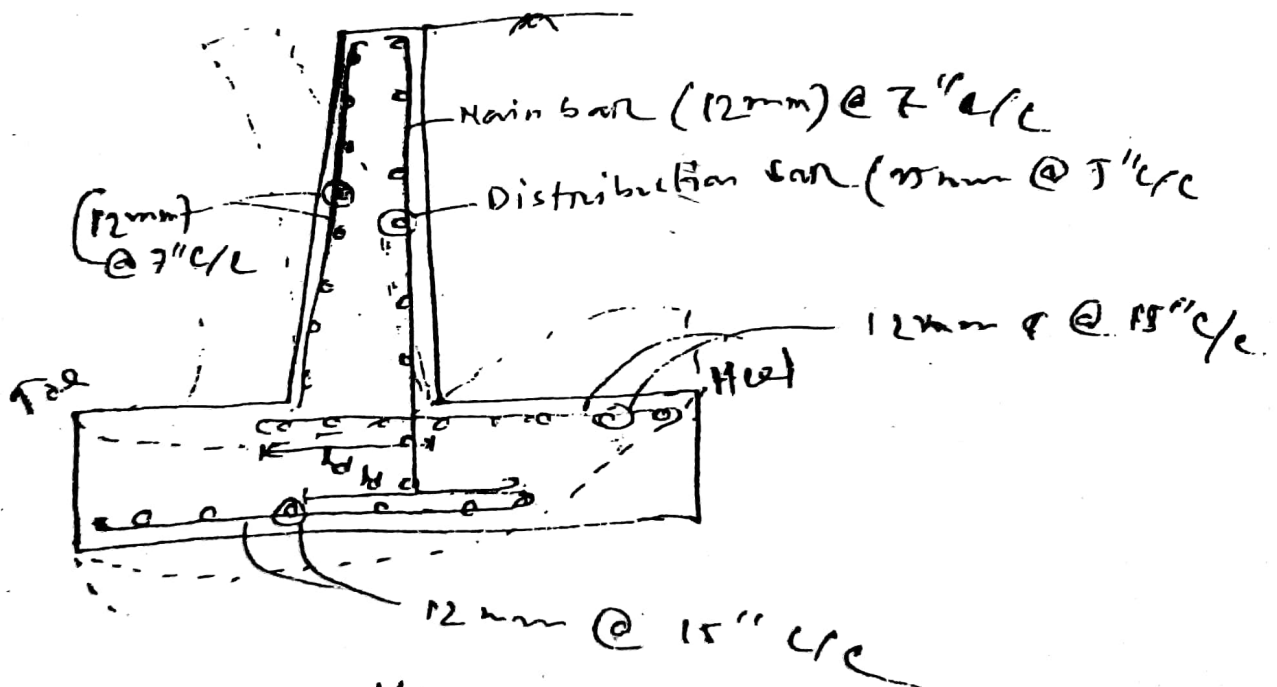 Main bar (12mm) @ 7" c/c
Distribution bar (
@ 5" c/c
(12mm)
@ 7" c/c
12mm φ @ 15" c/c
Toe
Heel
ld
ld
12mm @ 15" c/c